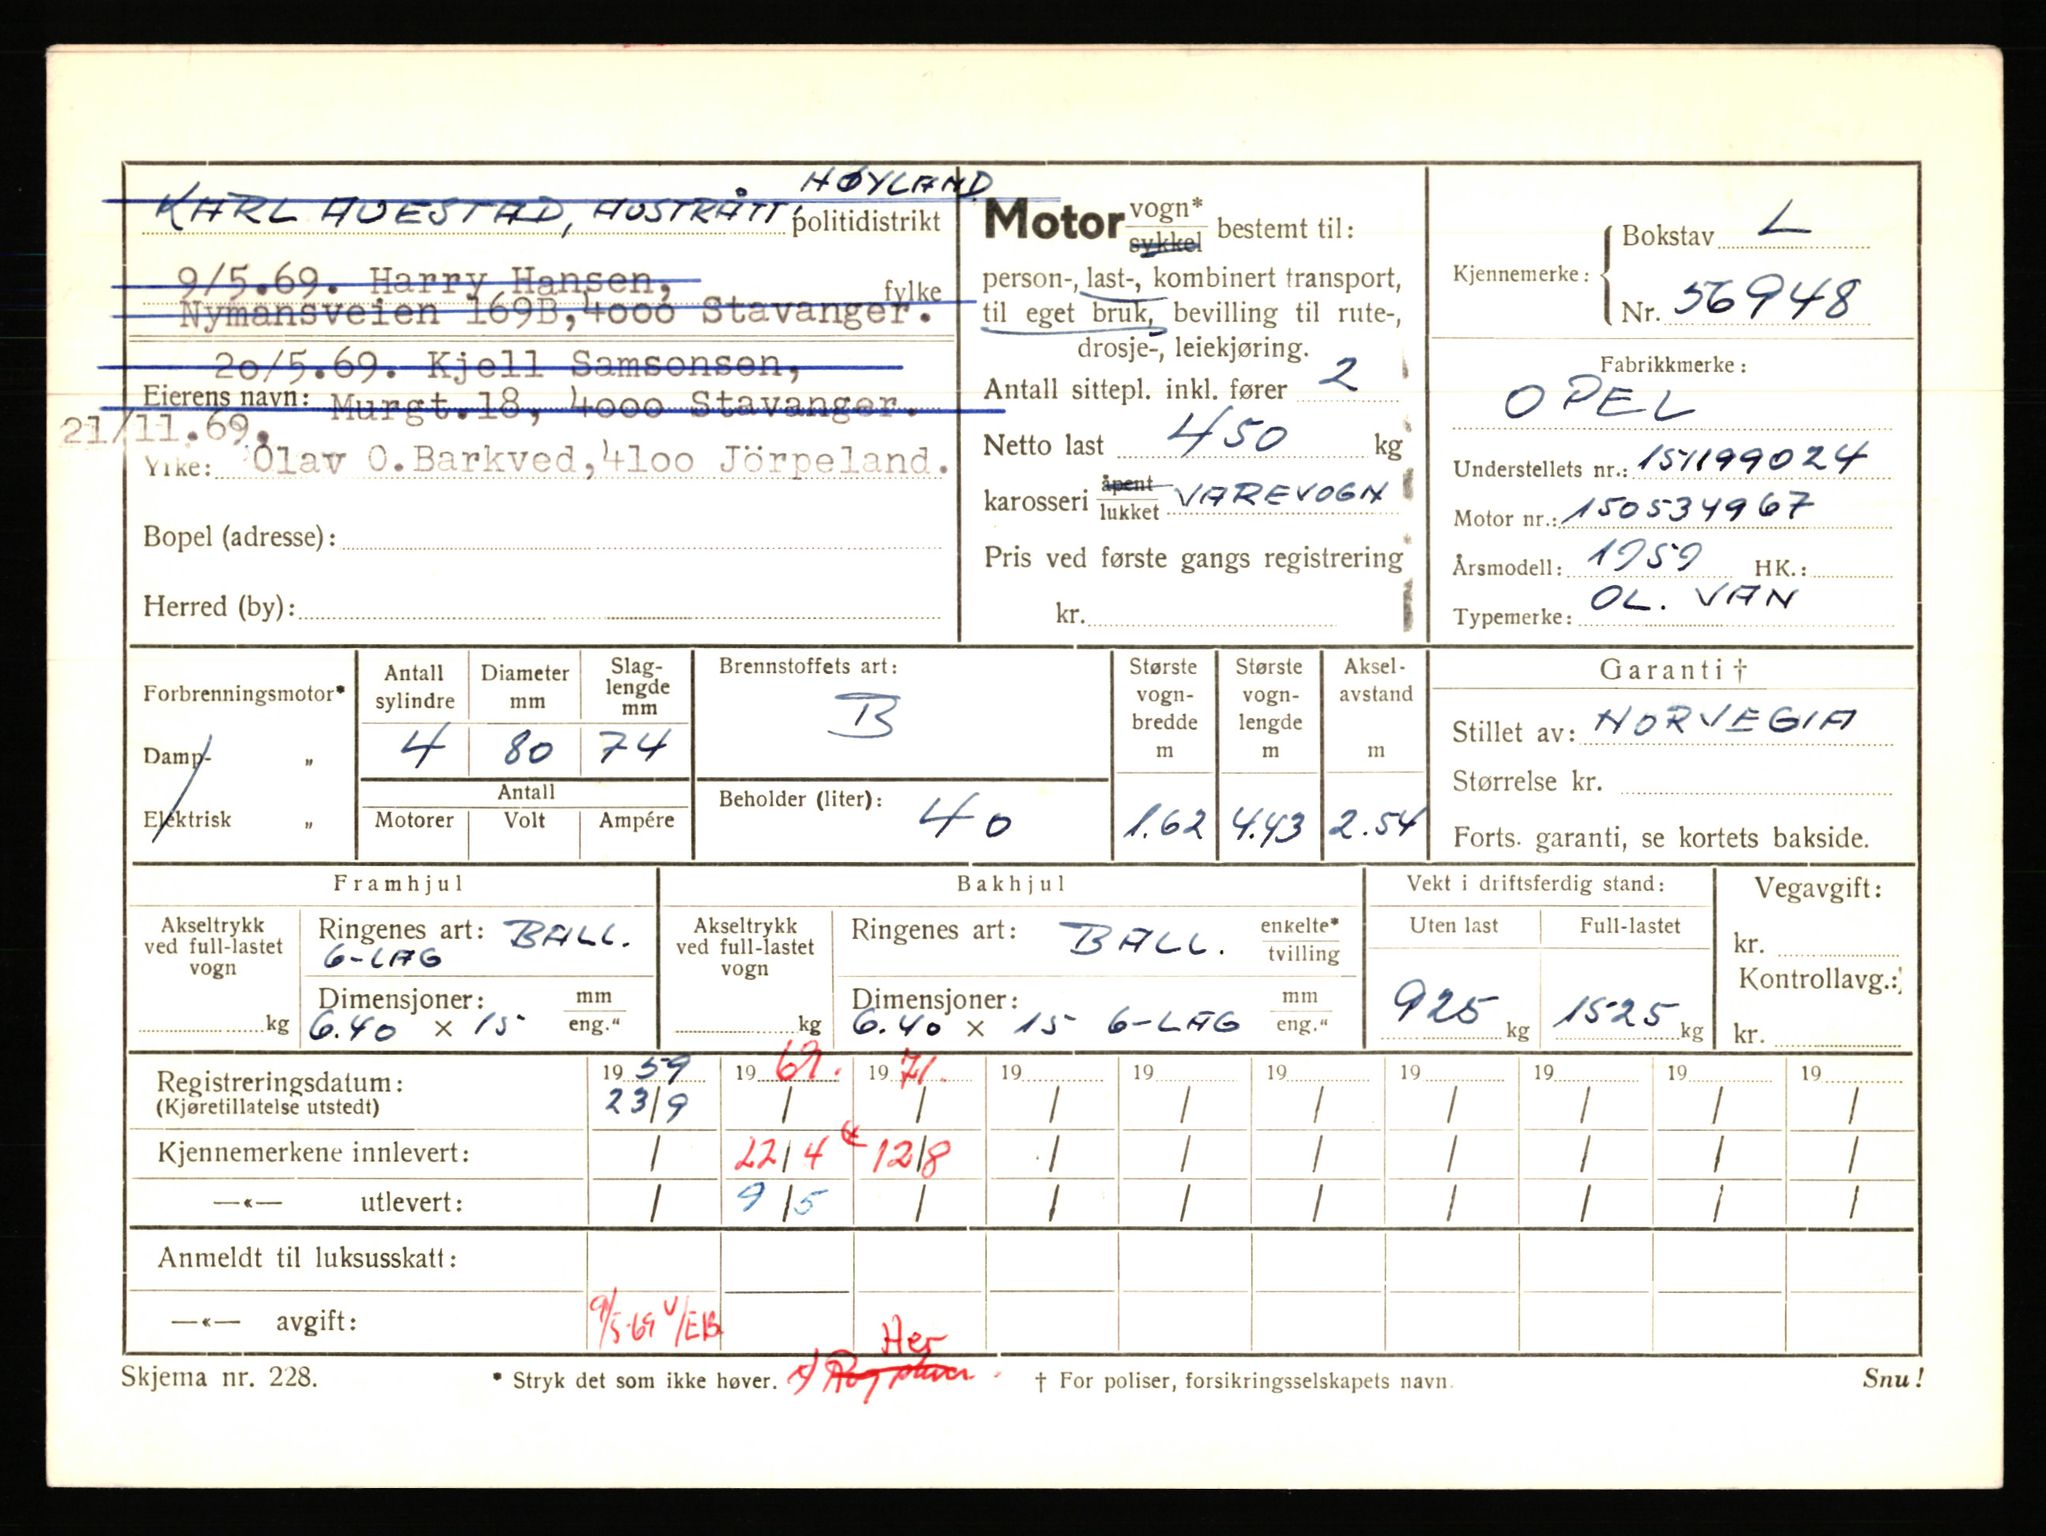 HØYLAND
KARL AUESTAD, AUSTRÅTT, politidistrikt
9/5.69. Harry Hansen,
fylke
Nymansveien 169B, 4000 Stavanger.
20/5.69. Kjell Samsonsen,
Eierens navn: Murgt.18, 4000 Stavanger.
21/11.69.
Yrke: Olav O.Barkved, 4100 Jörpeland.
Bopel (adresse):
Herred (by):
Motor vogn* sykkel bestemt til:
person-, last-, kombinert transport,
til eget bruk, bevilling til rute-,
drosje-, leiekjøring.
Antall sittepl. inkl. fører 2
Netto last 450 kg
karosseri åpent lukket VAREVOGN
Pris ved første gangs registrering
kr.
Kjennemerke: Bokstav L
Nr. 56948
Fabrikkmerke:
OPEL
Understellets nr.: 151199024
Motor nr.: 150534967
Årsmodell: 1959 HK.:
Typemerke: OL. VAN
Forbrenningsmotor*
Damp- „
Elektrisk „
Antall sylindre
Diameter mm
Slaglengde mm
4 80 74
Antall
Motorer Volt Ampére
Brennstoffets art:
B
Beholder (liter): 40
Største vogn-bredde m
Største vogn-lengde m
Aksel-avstand m
1.62 4.43 2.54
Garanti †
Stillet av: NORVEGIA
Størrelse kr.
Forts. garanti, se kortets bakside.
Framhjul
Akseltrykk ved full-lastet vogn
kg
Ringenes art: BALL.
6-LAG
Dimensjoner: mm
6.40 x 15 eng."
Bakhjul
Akseltrykk ved full-lastet vogn
kg
Ringenes art: BALL. enkelte* tvilling
Dimensjoner: mm
6.40 x 15 6-LAG eng."
Vekt i driftsferdig stand:
Uten last Full-lastet
925 kg 1525 kg
Vegavgift:
kr.
Kontrollavg.:
kr.
Registreringsdatum: 1959 1969. 1971. 19 19 19 19 19 19 19
(Kjøretillatelse utstedt) 23/9 / / / / / / / / /
Kjennemerkene innlevert: / 22/4 12/8 / / / / / / /
—«— utlevert: / 9/5 / / / / / / / /
Anmeldt til luksusskatt:
—«— avgift: 9/5-69 V/EB
Her
Skjema nr. 228. * Stryk det som ikke høver. † For poliser, forsikringsselskapets navn. Snu!